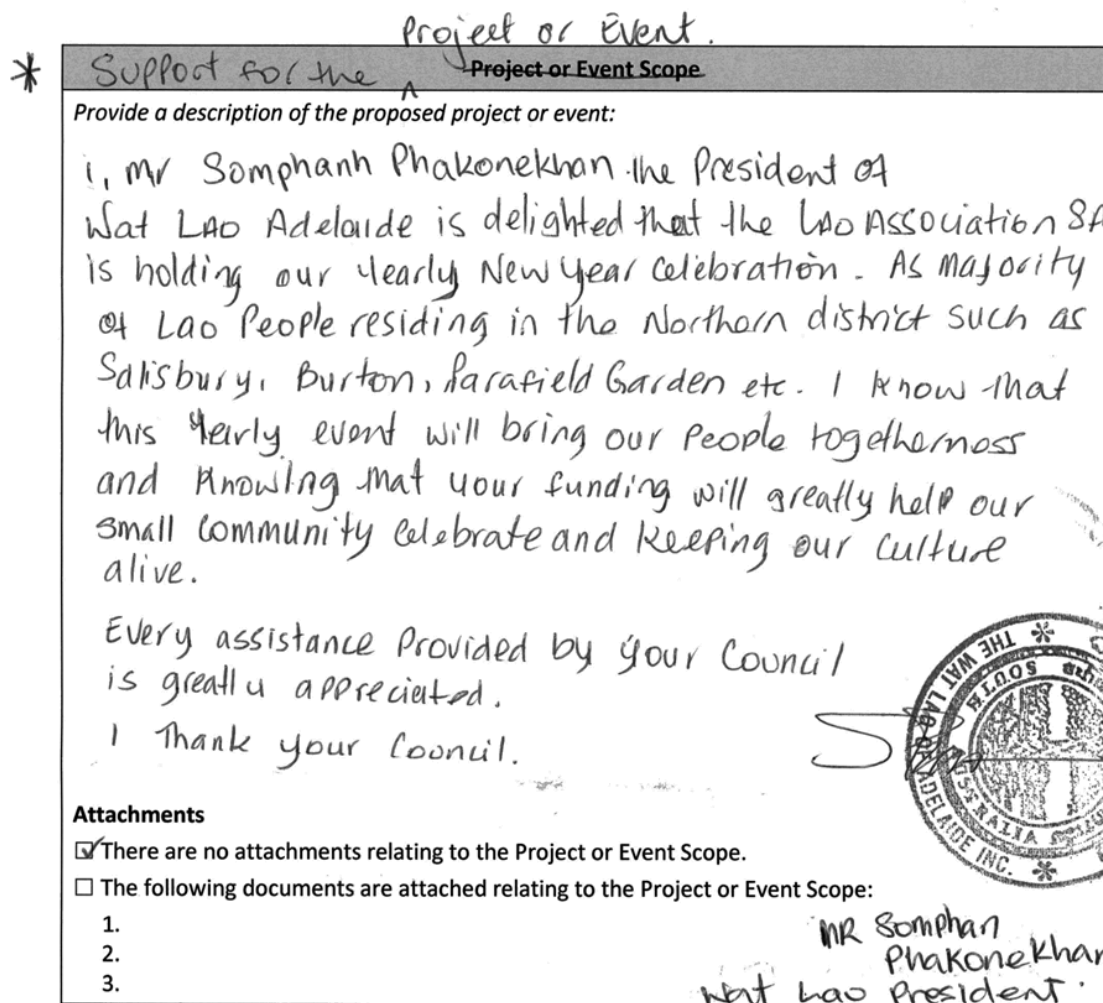 Project or Event.
* Support for the ^ Project or Event Scope
Provide a description of the proposed project or event:
i, Mr Somphanh Phakonekhan the President of
Wat LAO Adelaide is delighted that the LAO Association SA
is holding our yearly New Year Celebration. As majority
of Lao People residing in the Northern district such as
Salisbury, Burton, Parafield Garden etc. I know that
this yearly event will bring our people togetherness
and knowing that your funding will greatly help our
small Community celebrate and keeping our culture
alive.
Every assistance provided by your Council
is greatly appreciated.
I Thank your Council.
THE WAT LAO ADELAIDE INC.
SOUTH AUSTRALIA
Attachments
☑ There are no attachments relating to the Project or Event Scope.
☐ The following documents are attached relating to the Project or Event Scope:
1.
2.
3.
MR Somphan
Phakonekhan
Wat Lao President.